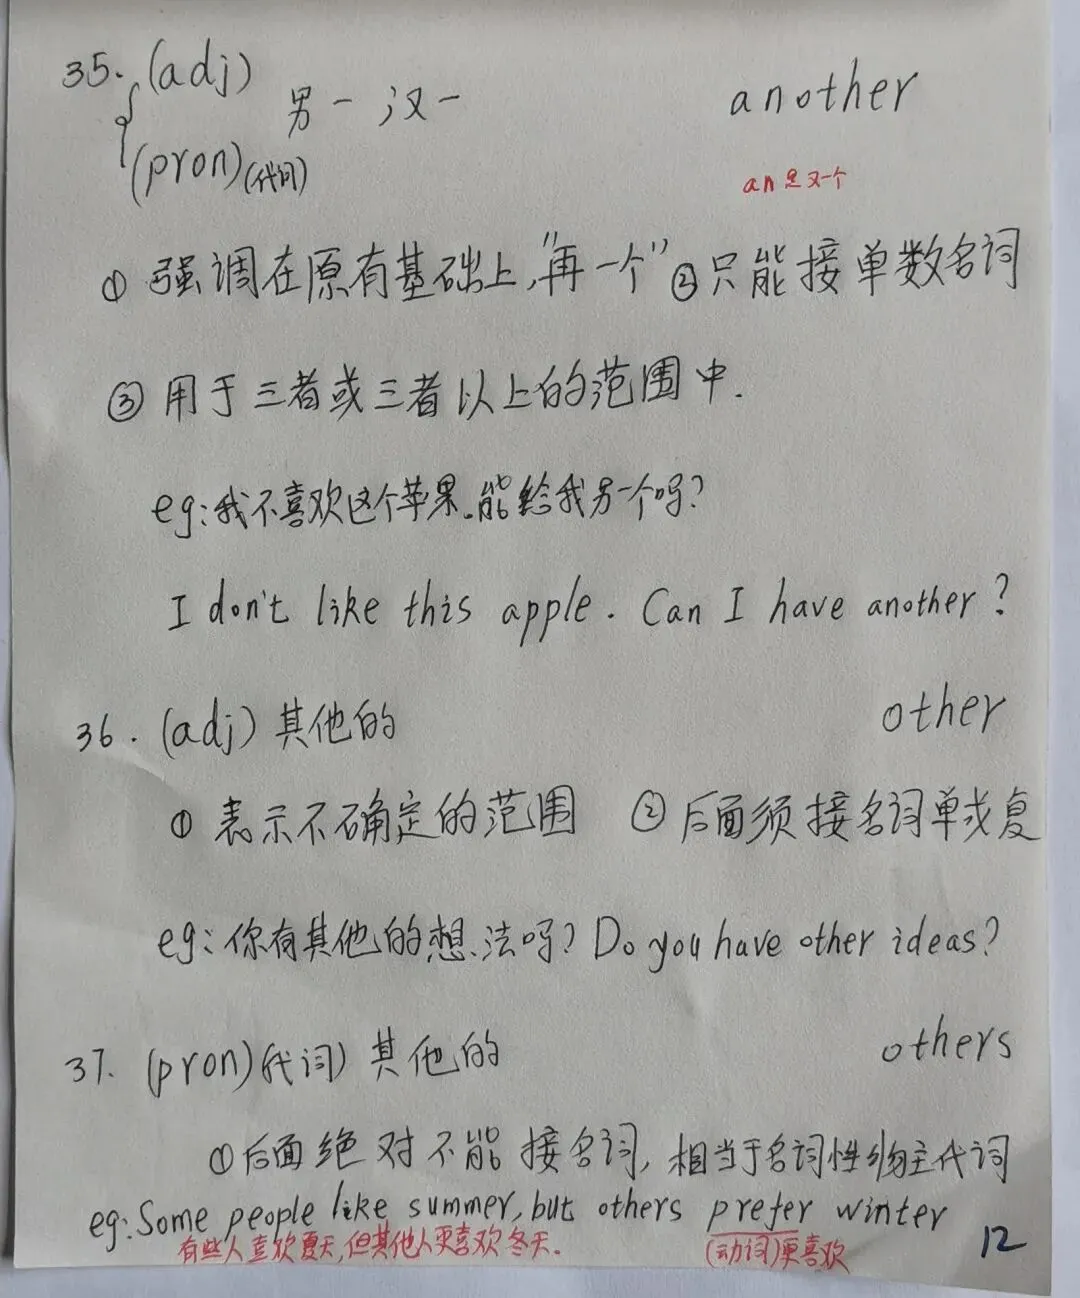 35. (adj) 另一 汉一 another
(pron)(代词)
an 是 又一个
① 强调在原有基础上,"再一个" ② 只能接单数名词
③ 用于三者或三者以上的范围中.
eg: 我不喜欢这个苹果.能给我另一个吗?
I don't like this apple. Can I have another?
36. (adj) 其他的 other
① 表示不确定的范围 ② 后面须接名词单或复
eg: 你有其他的想法吗? Do you have other ideas?
37. (pron)(代词) 其他的 others
① 后面绝对不能接名词, 相当于名词性物主代词
eg: Some people like summer, but others prefer winter
有些人喜欢夏天,但其他人更喜欢冬天. (动词)更喜欢
12